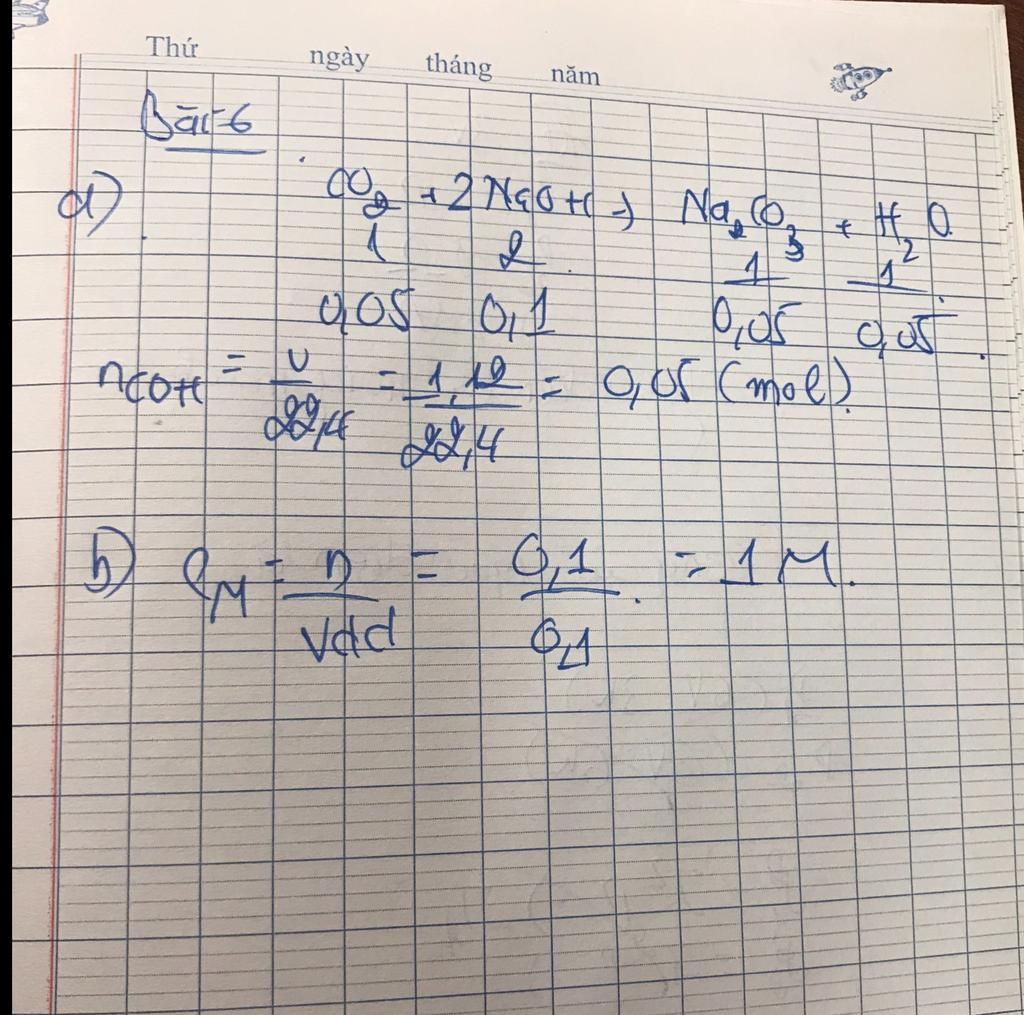 Thứ ngày tháng năm
Bài 6
a) CO2 + 2NaOH → Na2CO3 + H2O
1 2 1 1
0,05 0,1 0,05 0,05
nCOH = V/22,4 = 1,12/22,4 = 0,05 (mol).
b) CM = n/Vdd = 0,1/0,1 = 1M.